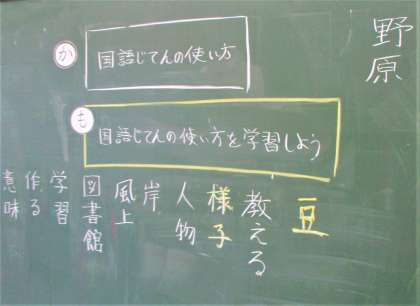 野原
か
国語じてんの使い方
も
国語じてんの使い方を学習しよう
豆
教える
様子
人物
岸
風上
図書館
学習
作る
意味